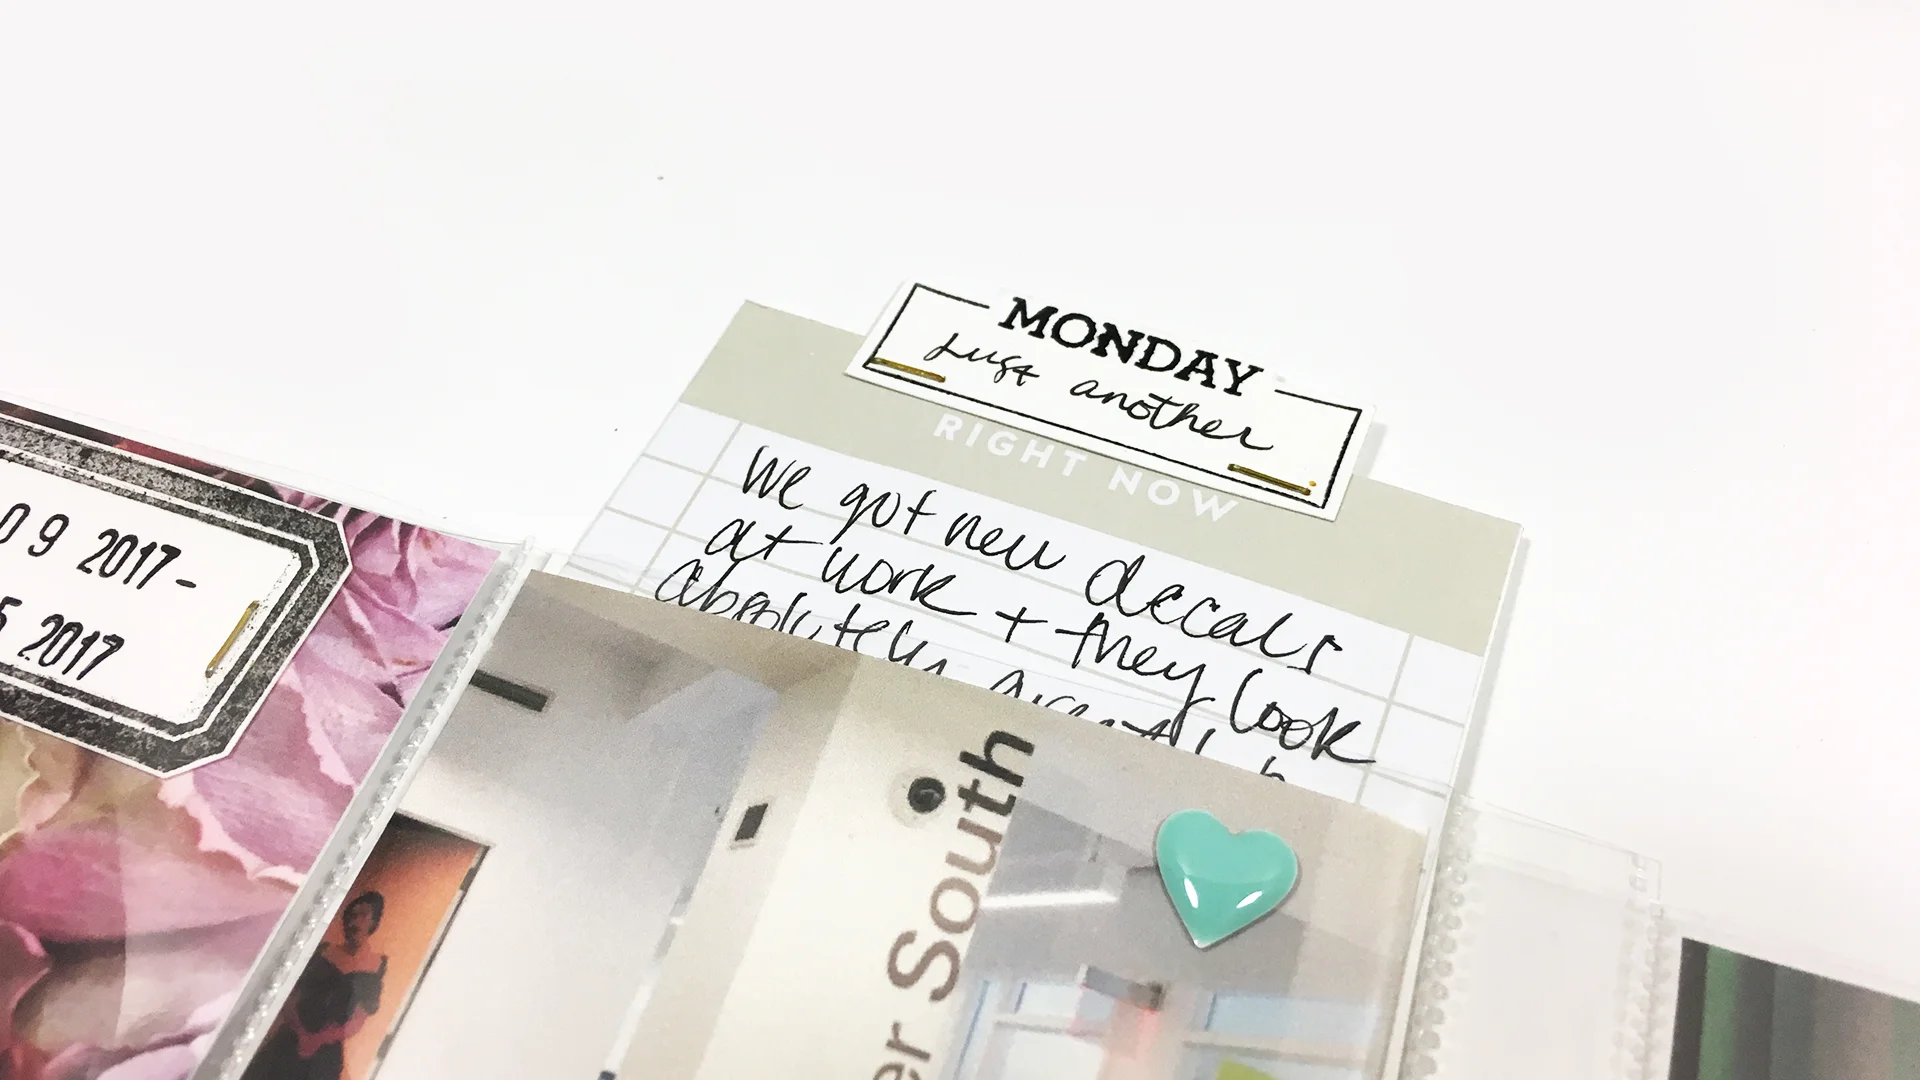 MONDAY
Just another
RIGHT NOW
We got new decals
at work + they look
absolutely great!
09 2017-
5 2017
er South